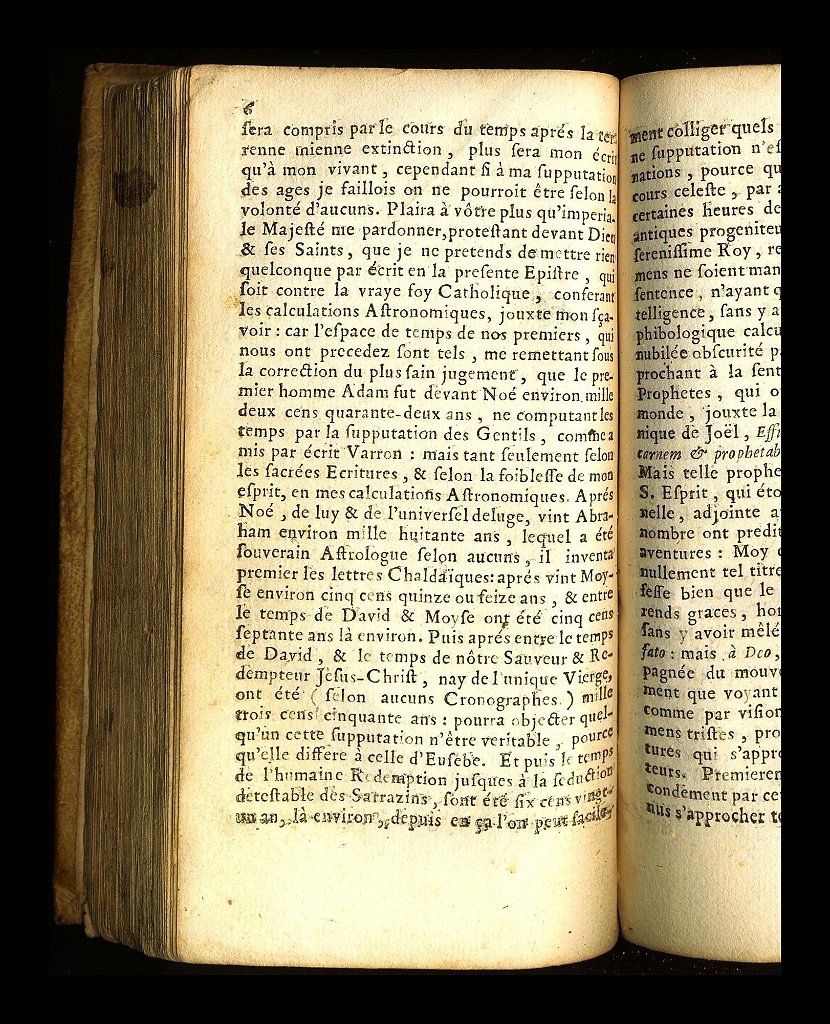 6
ſera compris par le cours du temps aprés la ter-
renne mienne extinction, plus ſera mon écrit
qu'à mon vivant, cependant ſi à ma ſupputation
des ages je faillois on ne pourroit être ſelon la
volonté d'aucuns. Plaira à vôtre plus qu'imperia-
le Majeſté me pardonner, proteſtant devant Dieu
& ſes Saints, que je ne pretends de mettre rien
quelconque par écrit en la preſente Epiſtre, qui
ſoit contre la vraye foy Catholique, conferant
les calculations Aſtronomiques, jouxte mon ſça-
voir : car l'eſpace de temps de nos premiers, qui
nous ont precedez ſont tels, me remettant ſous
la correction du plus ſain jugement, que le pre-
mier homme Adam fut devant Noé environ mille
deux cens quarante-deux ans, ne computant les
temps par la ſupputation des Gentils, comme a
mis par écrit Varron : mais tant ſeulement ſelon
les ſacrées Ecritures, & ſelon la foibleſſe de mon
eſprit, en mes calculations Aſtronomiques. Aprés
Noé, de luy & de l'univerſel deluge, vint Abra-
ham environ mille huitante ans, lequel a été
ſouverain Aſtrologue ſelon aucuns, il inventa
premier les lettres Chaldaïques: aprés vint Moy-
ſe environ cinq cens quinze ou ſeize ans, & entre
le temps de David & Moyſe ont été cinq cens
ſeptante ans là environ. Puis aprés entre le temps
de David, & le temps de nôtre Sauveur & Re-
dempteur Jeſus-Chriſt, nay de l'unique Vierge,
ont été (ſelon aucuns Cronographes.) mille
trois cens cinquante ans : pourra objecter quel-
qu'un cette ſupputation n'être veritable, pource
qu'elle differe à celle d'Euſebe. Et puis le temps
de l'humaine Redemption juſques à la ſeduction
déteſtable des Sarrazins, ſont été ſix cens vingt-
un an, là environ, depuis en ça l'on peut facile-
ment colliger quels
ne ſupputation n'eſ
nations, pource qu
cours celeſte, par
certaines heures de
antiques progeniteu
ſereniſſime Roy, re
mens ne ſoient man
ſentence, n'ayant q
telligence, ſans y a
phibologique calcu
nubilée obſcurité p
prochant à la ſent
Prophetes, qui o
monde, jouxte la
nique de Joël, Effi
carnem & prophetab
Mais telle prophe
S. Eſprit, qui éto
nelle, adjointe a
nombre ont predit
aventures : Moy
nullement tel titre
feſſe bien que le
rends graces, hon
ſans y avoir mêlé
fato : mais à Deo,
pagnée du mouve
ment que voyant
comme par viſion
mens triſtes, pro
tures qui s'appro
teurs. Premieren
condement par ce
nus s'approcher te